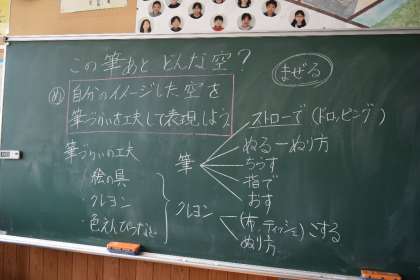 この筆あと どんな空?
まぜる
め 自分のイメージした空を
筆づかいを工夫して表現しよう
筆づかいの工夫
絵の具
クレヨン
色えんぴつなど
筆
ストローで(ドロッピング)
ぬるーぬり方
ちらす
指で
おす
クレヨン
(布、ティッシュ)こする
ぬり方